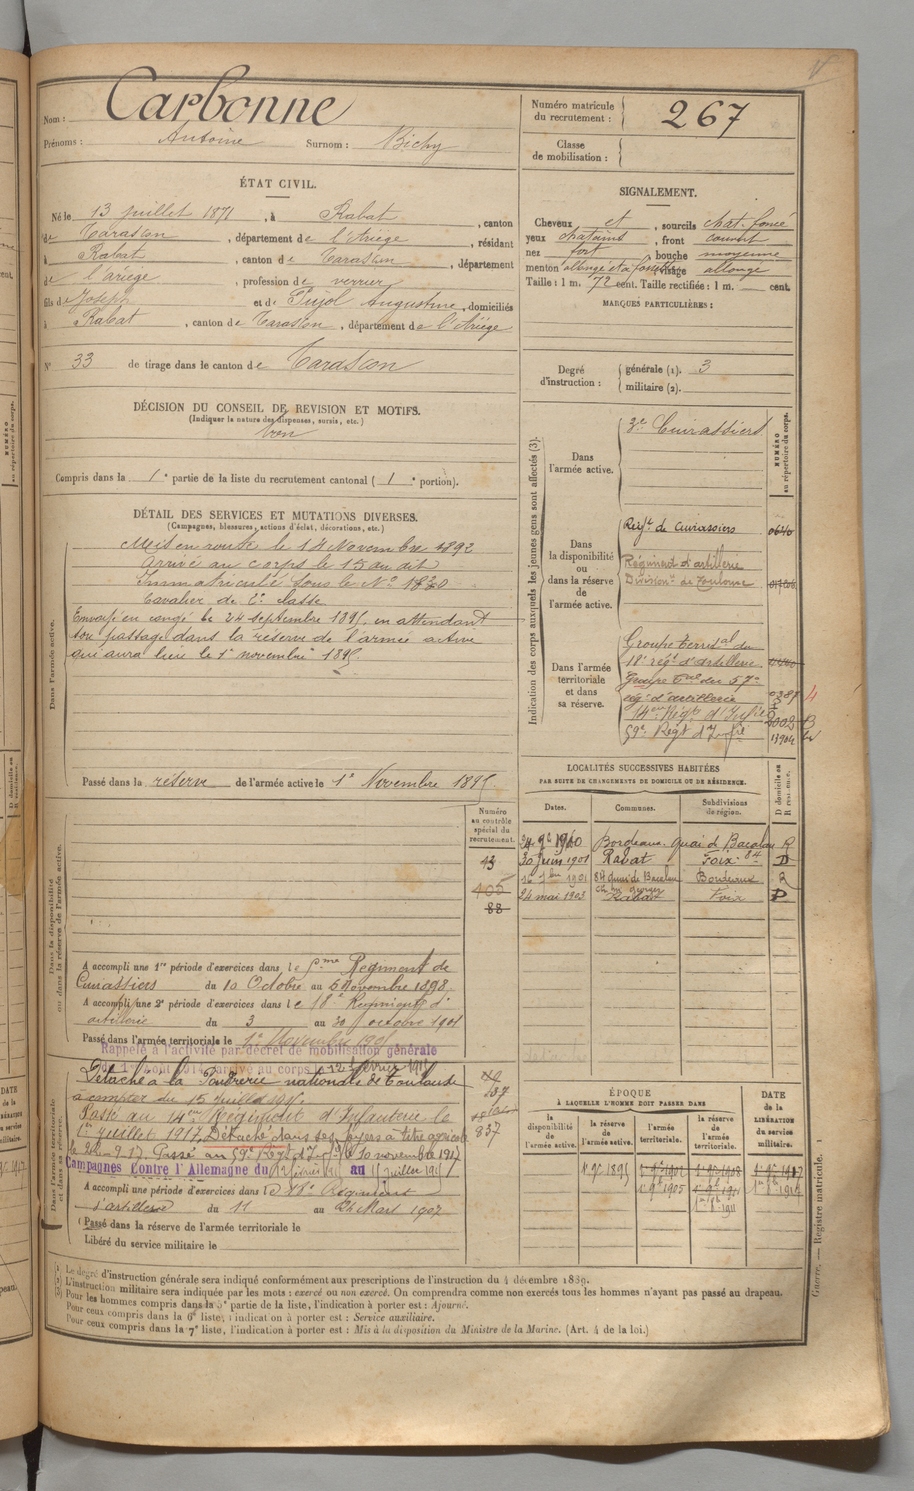 Nom : Carbonne
Prénoms : Antoine Surnom : Bichy
ÉTAT CIVIL.
Né le 13 juillet 1871, à Rabat, canton
de Tarascon, département de l'Ariège, résidant
à Rabat, canton de Tarascon, département
de l'ariège, profession de verrier
fils de Joseph et de Pujol Augustine, domiciliés
à Rabat, canton de Tarascon, département de l'Ariège
N° 33 de tirage dans le canton de Tarascon
DÉCISION DU CONSEIL DE REVISION ET MOTIFS.
(Indiquer la nature des dispenses, sursis, etc.)
bon
Compris dans la 1e partie de la liste du recrutement cantonal ( 1e portion).
DÉTAIL DES SERVICES ET MUTATIONS DIVERSES.
(Campagnes, blessures, actions d'éclat, décorations, etc.)
Dans l'armée active.
Mis en route le 14 Novembre 1892
Arrivé au corps le 15 au dit
Immatriculé sous le N°
Cavalier de 2e classe
Envoyé en congé le 24 septembre 1895, en attendant
son passage dans la réserve de l'armée active
qui aura lieu le 1er novembre 1895.
Passé dans la réserve de l'armée active le 1er Novembre 1895
Dans la disponibilité
ou dans la réserve de l'armée active.
Numéro
au contrôle
spécial du
recrutement.
13
405
88
A accompli une 1re période d'exercices dans le me Régiment de
Cuirassiers du 10 Octobre au 6 Novembre 1898.
A accompli une 2e période d'exercices dans le 18e Régiment d'
artillerie du 3 au 30 octobre 1901
Passé dans l'armée territoriale le 1er Novembre 1905
Rappelé à l'activité par décret de mobilisation générale
du 1er août 1914 arrivé au corps le 12 février 1915
Dans l'armée territoriale
et dans sa réserve.
Détaché à la Poudrerie nationale de Toulouse
à compter du 15 juillet 1915.
Passé au 14eme Régiment d'Infanterie le
1er juillet 1917, Détaché dans ses foyers à titre agricole
Passé au 59e Régt d'Infie le 10 novembre 1917
837
Campagnes Contre l'Allemagne du 12 février 1915 au 15 juillet 1915
A accompli une période d'exercices dans le 18e Régiment
d'artillerie du 11 au 24 Mars 1907
Passé dans la réserve de l'armée territoriale le
Libéré du service militaire le
Numéro matricule
du recrutement : 267
Classe
de mobilisation :
SIGNALEMENT.
Cheveux et, sourcils chat. foncé
yeux chatains, front couvert
nez fort, bouche moyenne
menton allongé et à fossette visage allongé
Taille : 1 m. 72 cent. Taille rectifiée : 1 m. cent.
MARQUES PARTICULIÈRES :
Degré
d'instruction :
générale (1). 3
militaire (2).
Indication des corps auxquels les jeunes gens sont affectés (3).
NUMÉRO
au répertoire du corps.
Dans
l'armée active.
3e Cuirassiers
Dans
la disponibilité
ou
dans la réserve
de
l'armée active.
Régt de Cuirassiers
Régiment d'artillerie
Division de Toulouse
Dans l'armée
territoriale
et dans
sa réserve.
Groupe territal du
18e régt d'artillerie
Groupe du 57e
régt d'artillerie 0387
14eme Régt d'Infie
59e Régt d'Infie 13904
LOCALITÉS SUCCESSIVES HABITÉES
PAR SUITE DE CHANGEMENTS DE DOMICILE OU DE RÉSIDENCE.
Dates. Communes. Subdivisions
de région. D domicile ou
R résidence.
Bordeaux. quai de Bacalan 84 R
30 Juin 1901 Rabat Foix D
16 1901 84 quai de Bacalan Bordeaux R
24 mai 1903 Rabat Foix D
ÉPOQUE
À LAQUELLE L'HOMME DOIT PASSER DANS
DATE
de la
LIBÉRATION
du service
militaire.
la
disponibilité
de
l'armée active.
la réserve
de
l'armée active.
l'armée
territoriale.
la réserve
de
l'armée
territoriale.
1er 9bre 1895
1er 9bre 1905
Guerre. — Registre matricule.
(1) Le degré d'instruction générale sera indiqué conformément aux prescriptions de l'instruction du 4 décembre 1889.
(2) L'instruction militaire sera indiquée par les mots : exercé ou non exercé. On comprendra comme non exercés tous les hommes n'ayant pas passé au drapeau.
(3) Pour les hommes compris dans la 5e partie de la liste, l'indication à porter est : Ajourné.
Pour ceux compris dans la 6e liste, l'indication à porter est : Service auxiliaire.
Pour ceux compris dans la 7e liste, l'indication à porter est : Mis à la disposition du Ministre de la Marine. (Art. 4 de la loi.)